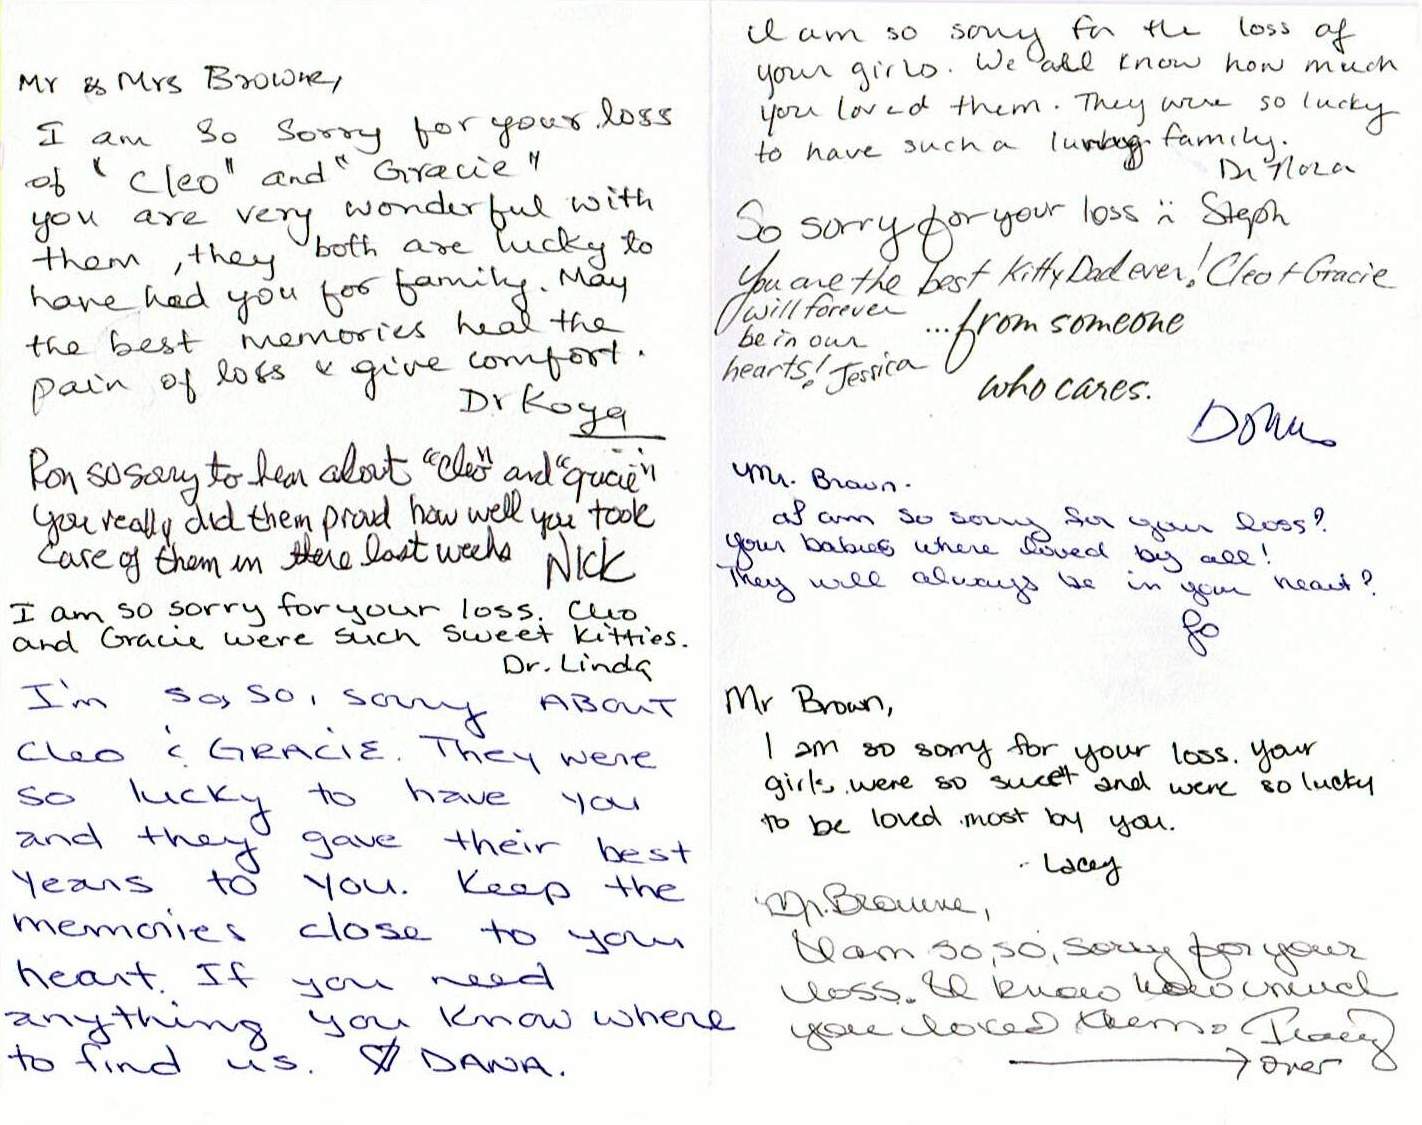 Mr & Mrs Browne,
I am so sorry for your loss
of "Cleo" and "Gracie"
you are very wonderful with
them, they both are lucky to
have had you for family. May
the best memories heal the
pain of loss & give comfort.
Dr Koya
Ron so sorry to hear about "Cleo" and "Gracie"
You really did them proud how well you took
care of them in there last weeks Nick
I am so sorry for your loss. Cleo
and Gracie were such sweet kitties.
Dr. Linda
I'm so, so, sorry ABOUT
Cleo & GRACIE. They were
so lucky to have you
and they gave their best
years to you. Keep the
memories close to your
heart. If you need
anything you know where
to find us. ♡ DANA.
I am so sorry for the loss of
your girls. We all know how much
you loved them. They were so lucky
to have such a family.
Dr Nora
So sorry for your loss :( Steph
You are the best Kitty Dad ever! Cleo + Gracie
will forever
be in our
hearts! Jessica
...from someone
who cares.
Mr. Brown.
I am so sorry for your loss?
Your babies where loved by all!
They will always be in your heart?
Jo
Mr Brown,
I am so sorry for your loss. Your
girls were so sweet and were so lucky
to be loved most by you.
- Lacey
Mr. Browne,
I am so, so, sorry for your
loss. I know how much
you loved them. Tracy
→ over